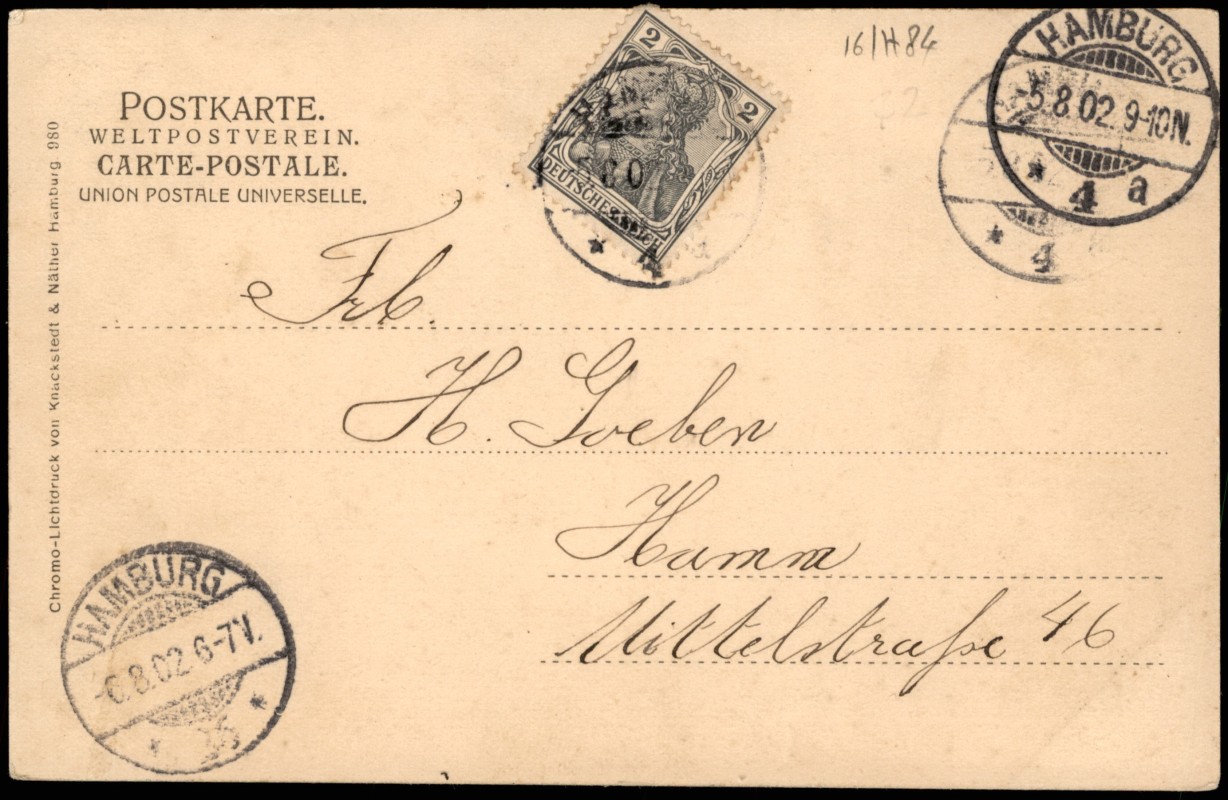 POSTKARTE.
WELTPOSTVEREIN.
CARTE-POSTALE.
UNION POSTALE UNIVERSELLE.
2
2
DEUTSCHES REICH
16/H84
HAMBURG
5.8.02. 9-10N.
* 4 a
* 4
Frl.
H. Goeben
Hamm
Mittelstraße 46
HAMBURG
6.8.02. 6-7V.
Chromo-Lichtdruck von Knackstedt & Näther Hamburg 980